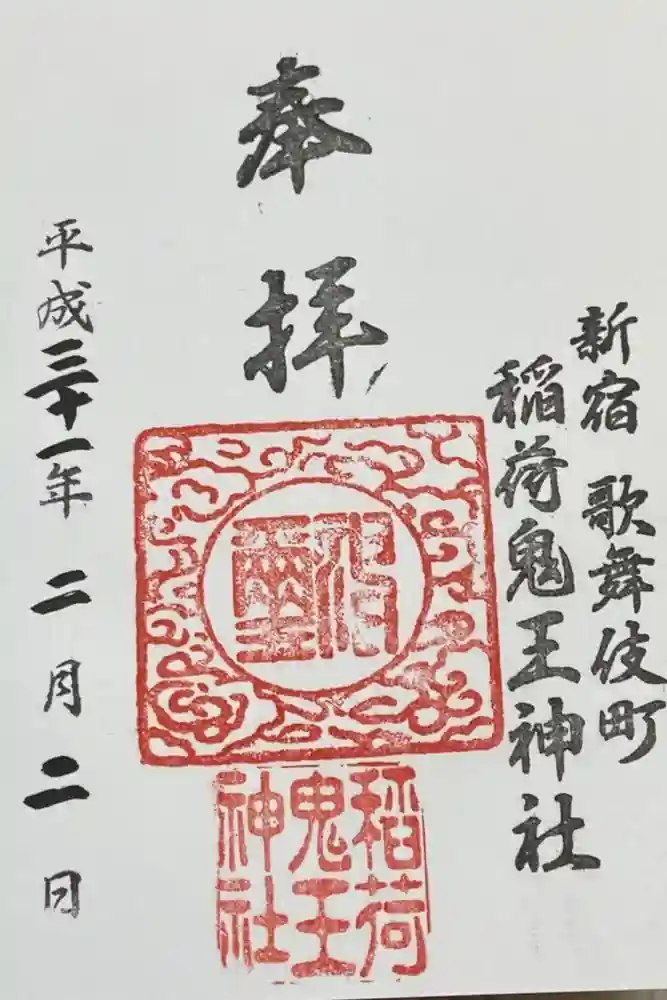 新宿 歌舞伎町
稲荷鬼王神社
奉拝
稲荷
鬼王
神社
平成三十一年 二月二日